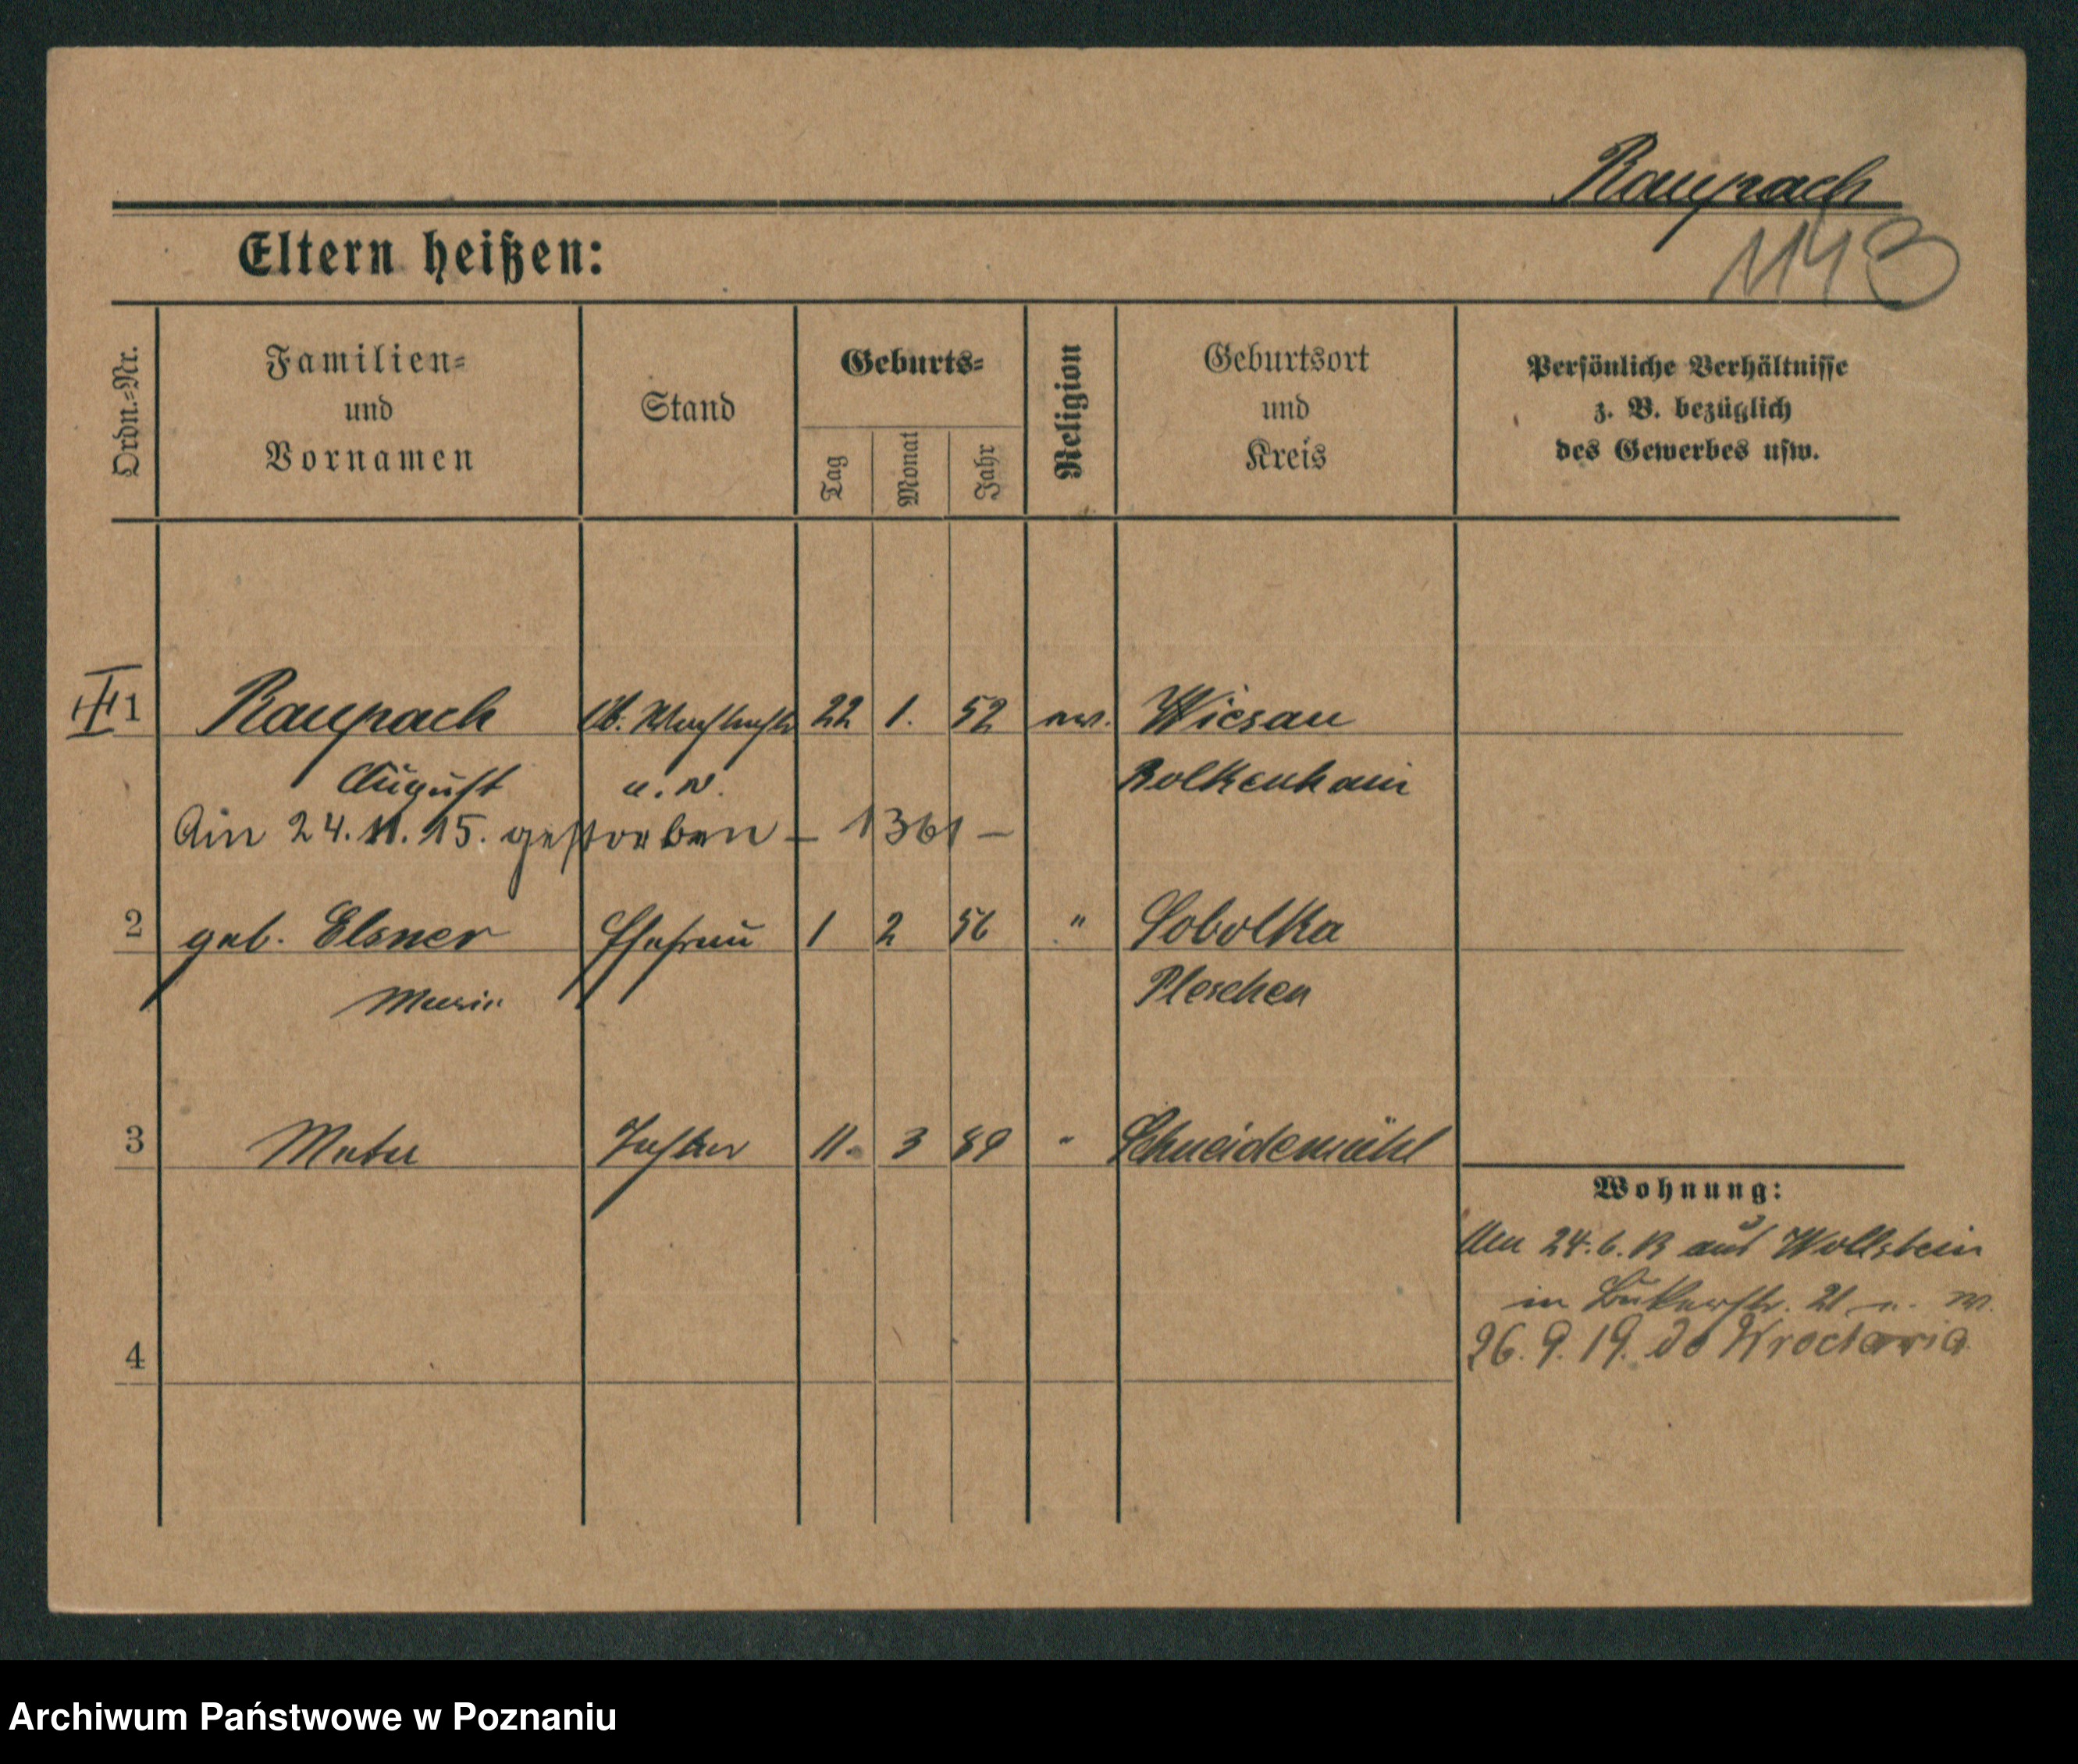 Raupach
1143
Eltern heißen:
Ordn.-Nr.
Familien-
und
Vornamen
Stand
Geburts-
Tag
Monat
Jahr
Religion
Geburtsort
und
Kreis
Persönliche Verhältnisse
z. B. bezüglich
des Gewerbes usw.
III 1 Raupach 22 1. 52 ev. Wiesau
August Bolkenhain
Am 24. 11. 15. gestorben – 1361 –
2 geb. Elsner Ehefrau 1 2 56 " Sobotka
Marie Pleschen
3 Tochter 11. 3 89 " Schneidemühl
Wohnung:
Am 24. 6. 13 aus Wollstein
in Bukerstr. 21
26. 9. 19. do Wrocławia
4
Archiwum Państwowe w Poznaniu